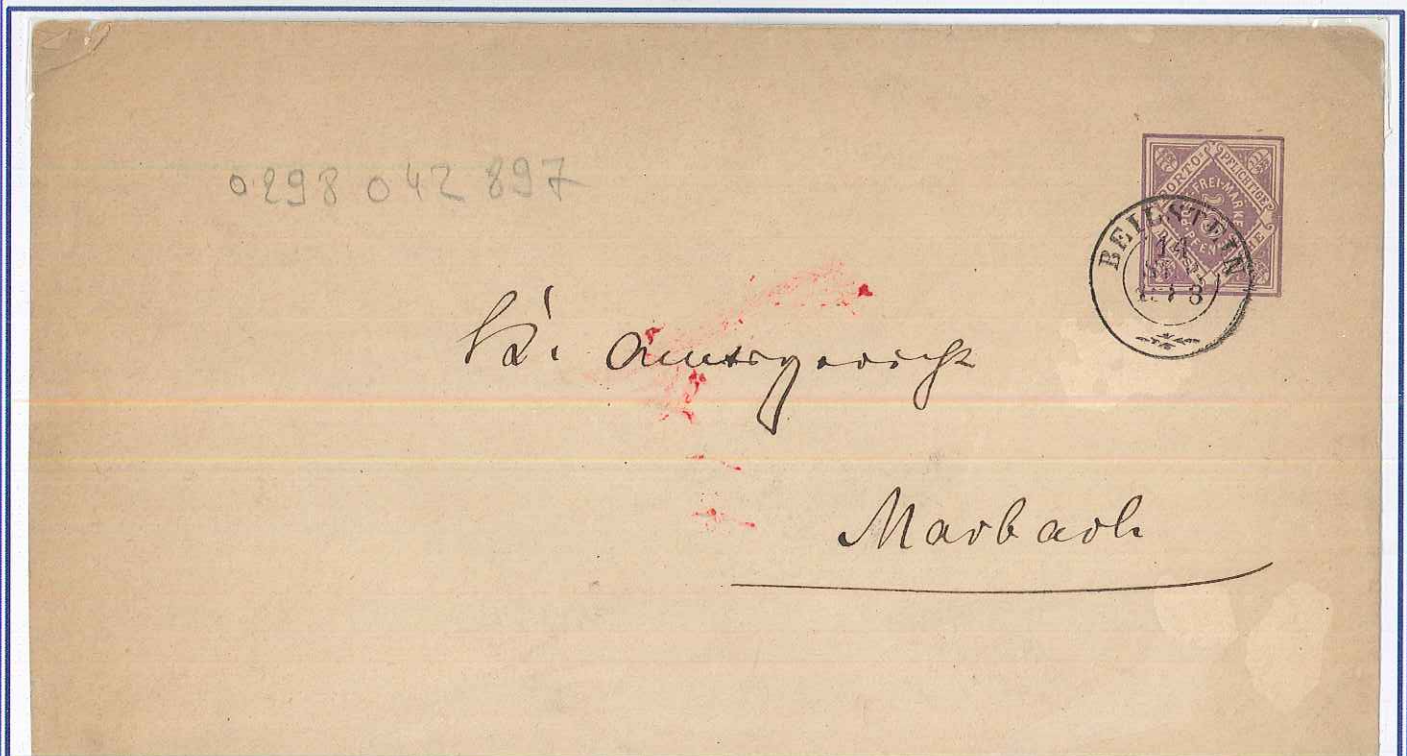 0298 042 897
PORTO- PFLICHTIGE
FREI-MARKE
PFEN
BEILSTEIN
14
8
K. Amtsgericht
Marbach